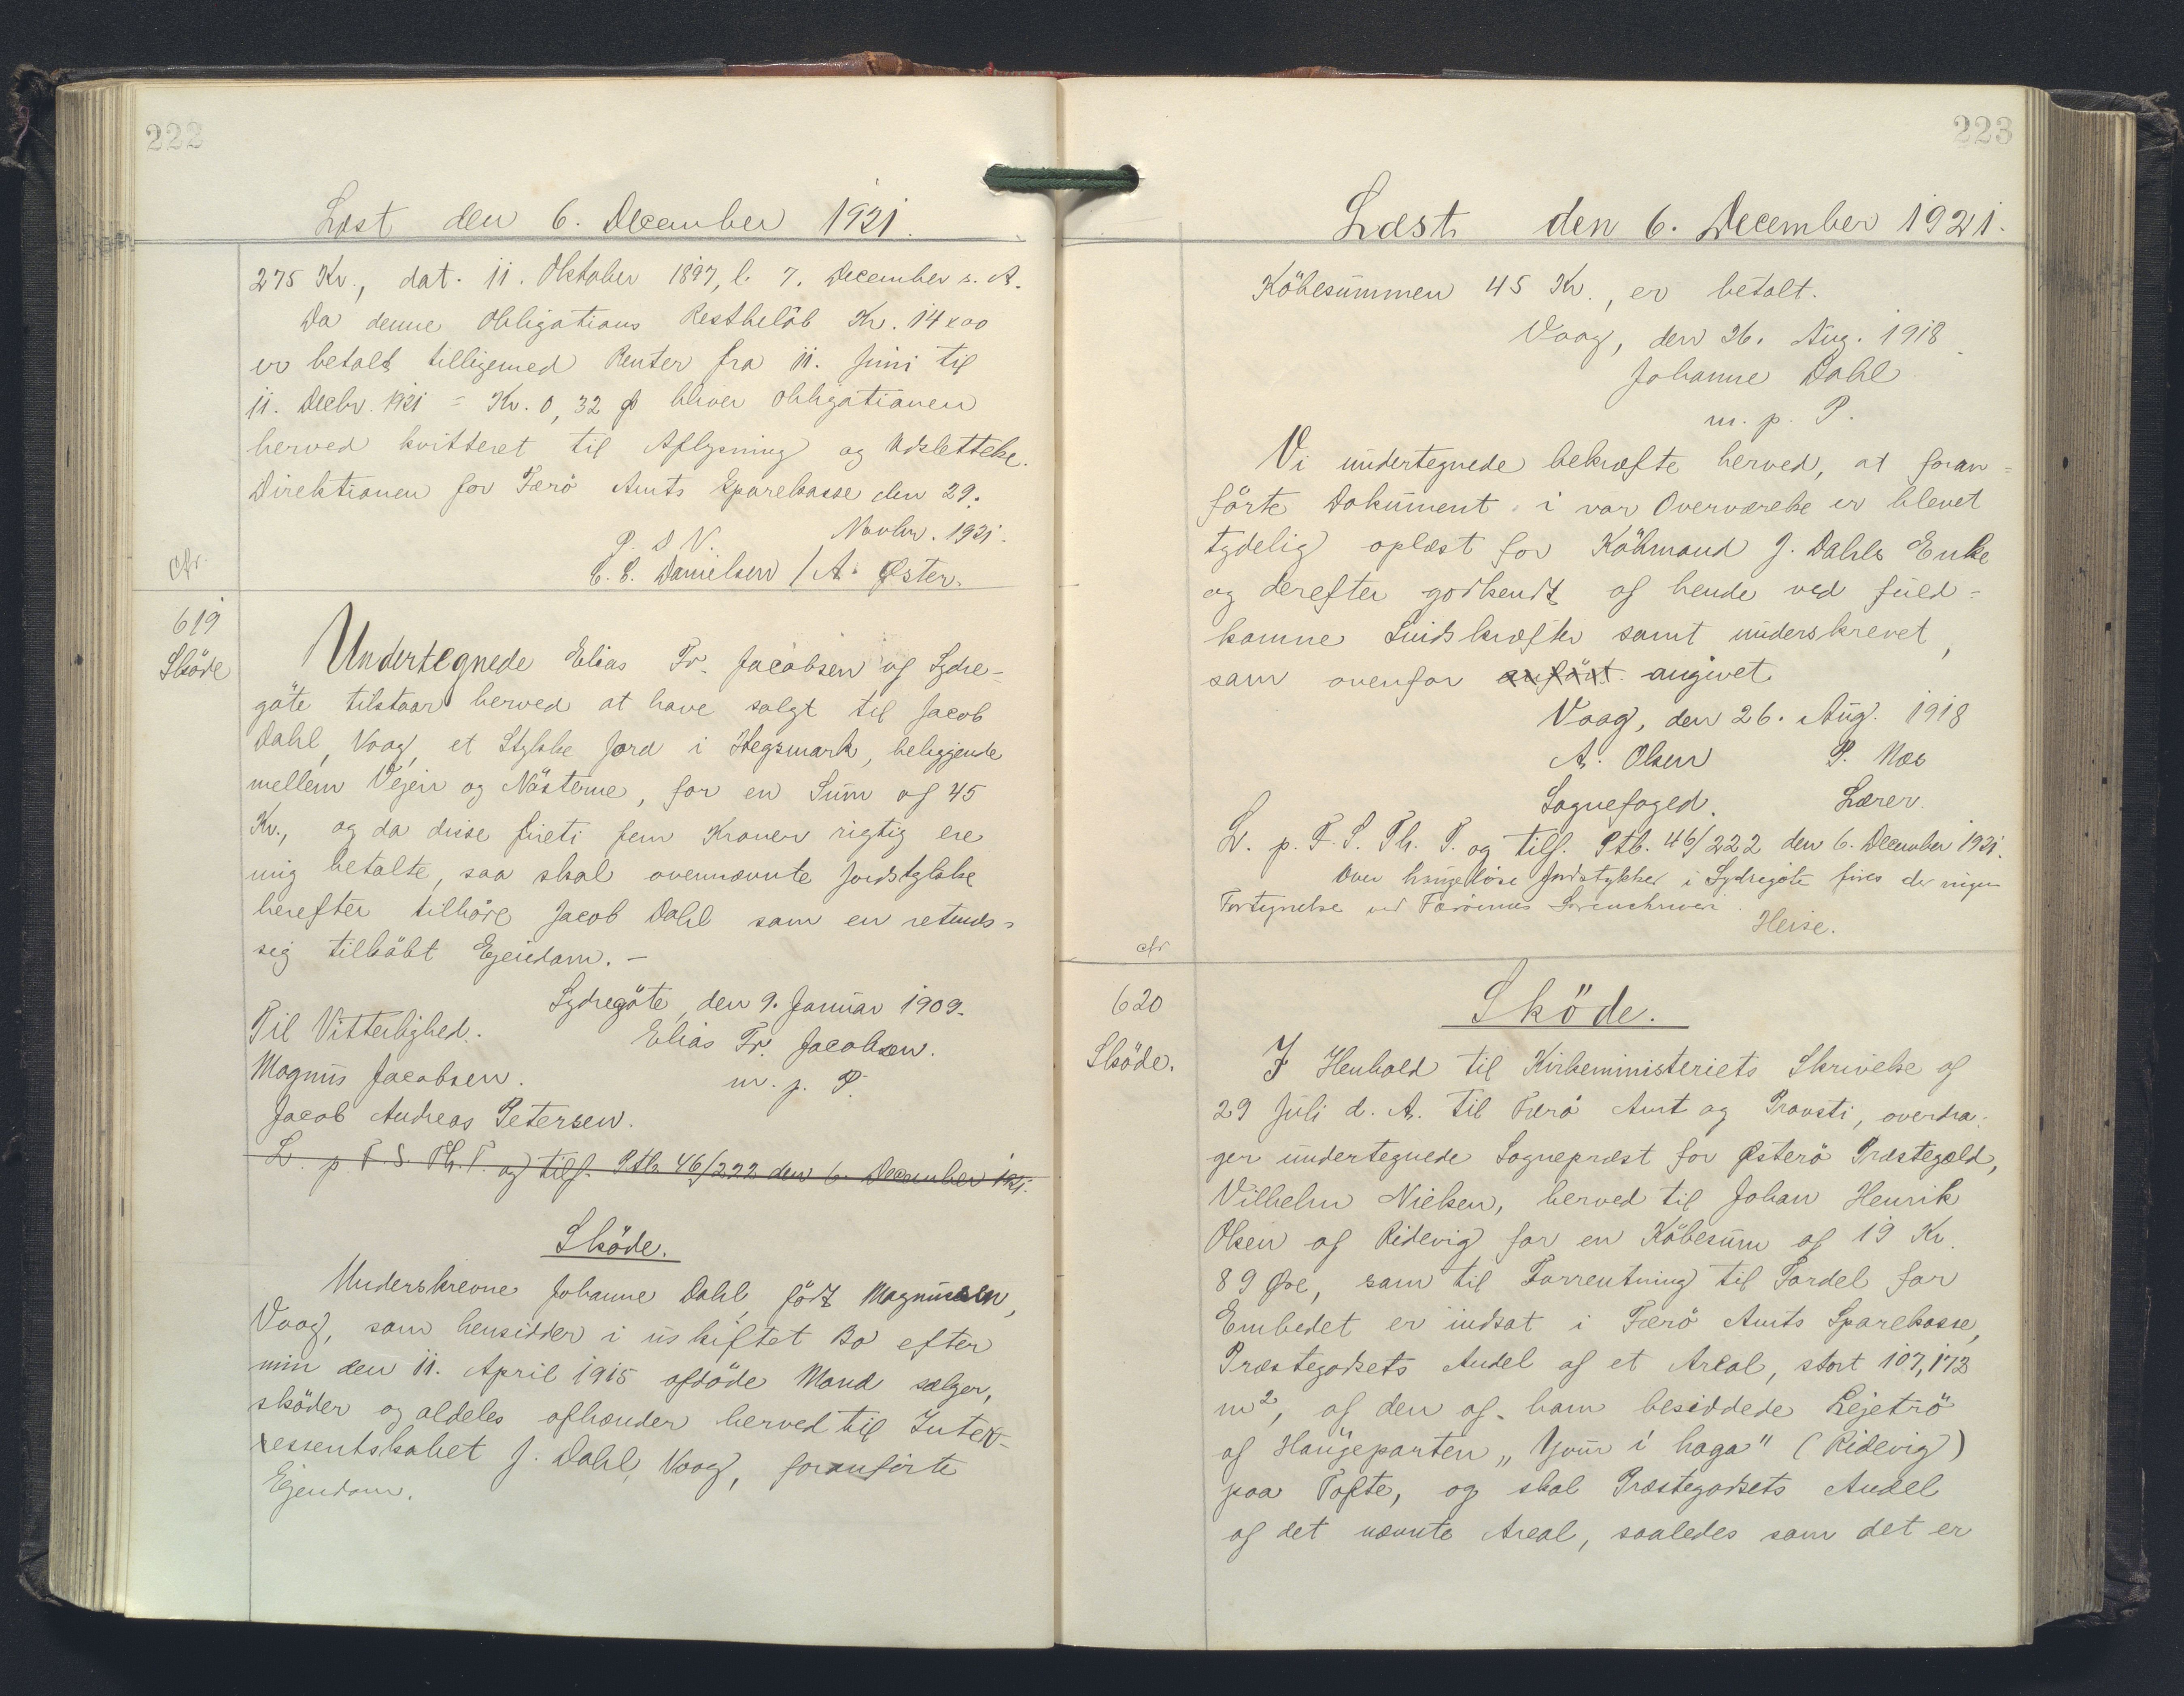 222
Læst den 6. December 1921.
275 Kr., dat. 11. Oktober 1897, l. 7. December s. A.
Da denne Obligations Restbelöb Kr. 14 x 00
er betalt tilligemed Renter fra 11. Juni til
11. Decbr. 1921 = Kr. 0,32 Ø bliver Obligationen
herved kvitteret til Aflysning og Udslettelse.
Direktionen for Færö Amts Sparekasse den 29.
Novbr. 1921.
P. D V.
C. C. Danielsen / A. Øster.
cfr.
619
Sköde
Undertegnede Elias Fr. Jacobsen af Sydre-
göte tilstaar herved at have solgt til Jacob
Dahl, Voag, et Stykke Jord i Hegsmark, beliggende
mellem Vejen og Nösterne, for en Sum af 45
Kr., og da disse fireti fem Kroner rigtig ere
mig betalte, saa skal ovennævnte Jordstykke
herefter tilhöre Jacob Dahl som en retmæs-
sig tilköbt Ejendom. -
Sydregöte, den 9. Januar 1909.
Til Vitterlighed.
Elias Fr. Jacobsen.
Magnus Jacobsen.
m. p. P.
Jacob Andreas Petersen.
L. p. F. S. Th. T. og tilf. Ptb. 46/222 den 6. December 1921.
Sköde.
Underskrevne Johanne Dahl, födt Magnussen,
Voag, som hensidder i uskiftet Bo efter
min den 11. April 1915 afdöde Mand sælger,
sköder og aldeles afhænder herved til Inter-
ressentskabet J. Dahl, Voag, foranförte
Ejendom.
223
Læst den 6. December 1921.
Köbesummen 45 Kr., er betalt.
Voag, den 26. Aug. 1918.
Johanne Dahl
m. p. P.
Vi undertegnede bekræfte herved, at foran=
förte Dokument i vor Overværelse er blevet
tydelig oplæst for Köbmand J. Dahls Enke
og derefter godkendt af hende ved fuld-
komne Sindskræfter samt underskrevet,
som ovenfor anfört angivet.
Voag, den 26. Aug. 1918
A. Olsen P. Nes
Sognefoged. Lærer.
L. p. F. S. Th. T. og tilf. Ptb. 46/222 den 6. December 1921.
Over haugelöse Jordstykker i Sydregöte føres der ingen
Fortegnelse ved Færöernes Sorenskriveri.
Heise.
cfr
620
Sköde.
Sköde.
I Henhold til Kirkeministeriets Skrivelse af
29 Juli d. A. til Færö Amt og Provsti, overdra-
ger undertegnede Sognepræst for Østerö Præstegæld,
Vilhelm Nielsen, herved til Johan Henrik
Olsen af Ridevig for en Köbesum af 19 Kr.
89 Øre, som til Forrentning til Fordel for
Embedet er indsat i Færö Amts Sparekasse,
Præstegodsets Andel af et Areal, stort 107,172
m², af den af ham besiddede Lejetrö
af Haugeparten "Yvur i haga" (Ridevig)
paa Tofte, og skal Præstegodsets Andel
af det nævnte Areal, saaledes som det er